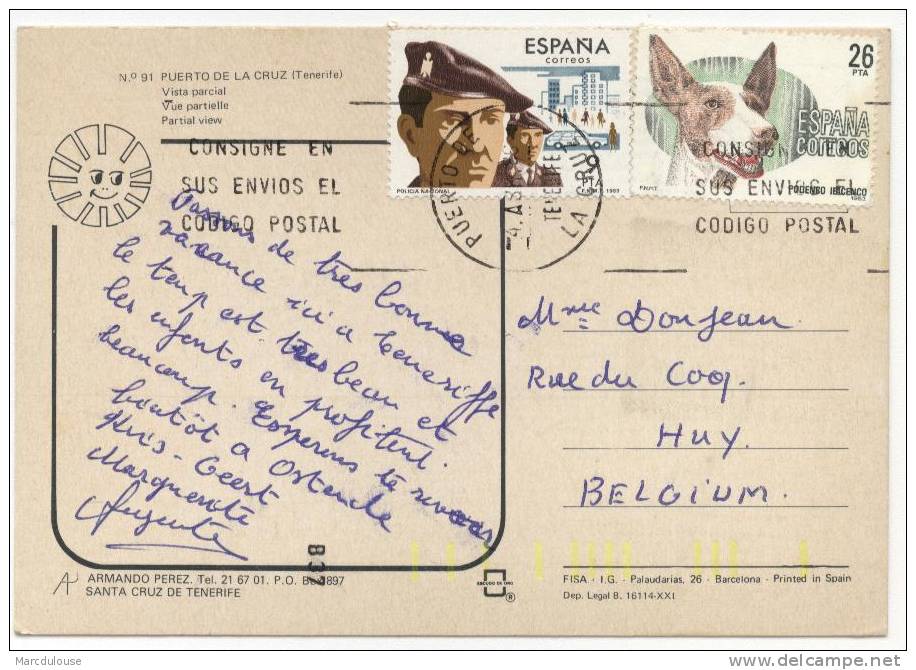 N.º 91 PUERTO DE LA CRUZ (Tenerife)
Vista parcial
Vue partielle
Partial view
ESPAÑA
correos
POLICIA NACIONAL
PTA
F.N.M.T. 1983
26
PTA
ESPAÑA
correos
PODENCO IBICENCO
F.N.M.T.
1983
CONSIGNE EN
SUS ENVIOS EL
CODIGO POSTAL
PUERTO DE
LA CRUZ
TENERIFE
CONSIGNE EN
SUS ENVIOS EL
CODIGO POSTAL
Passons de tres bonnes
vacance ici a Teneriffe
le temp est tres beau et
les enfents en profitent
beaucoup. Esperons te revoir
boutôt a Ostende
Kris - Geert
Marguerite
Mme Donjean
Rue du Coq.
HUY.
BELGIUM.
837
ARMANDO PEREZ. Tel. 21 67 01. P.O. Box 897
SANTA CRUZ DE TENERIFE
ESCUDO DE ORO
®
FISA - I.G. - Palaudarias, 26 - Barcelona - Printed in Spain
Dep. Legal B. 16114-XXI
Marcdulouse